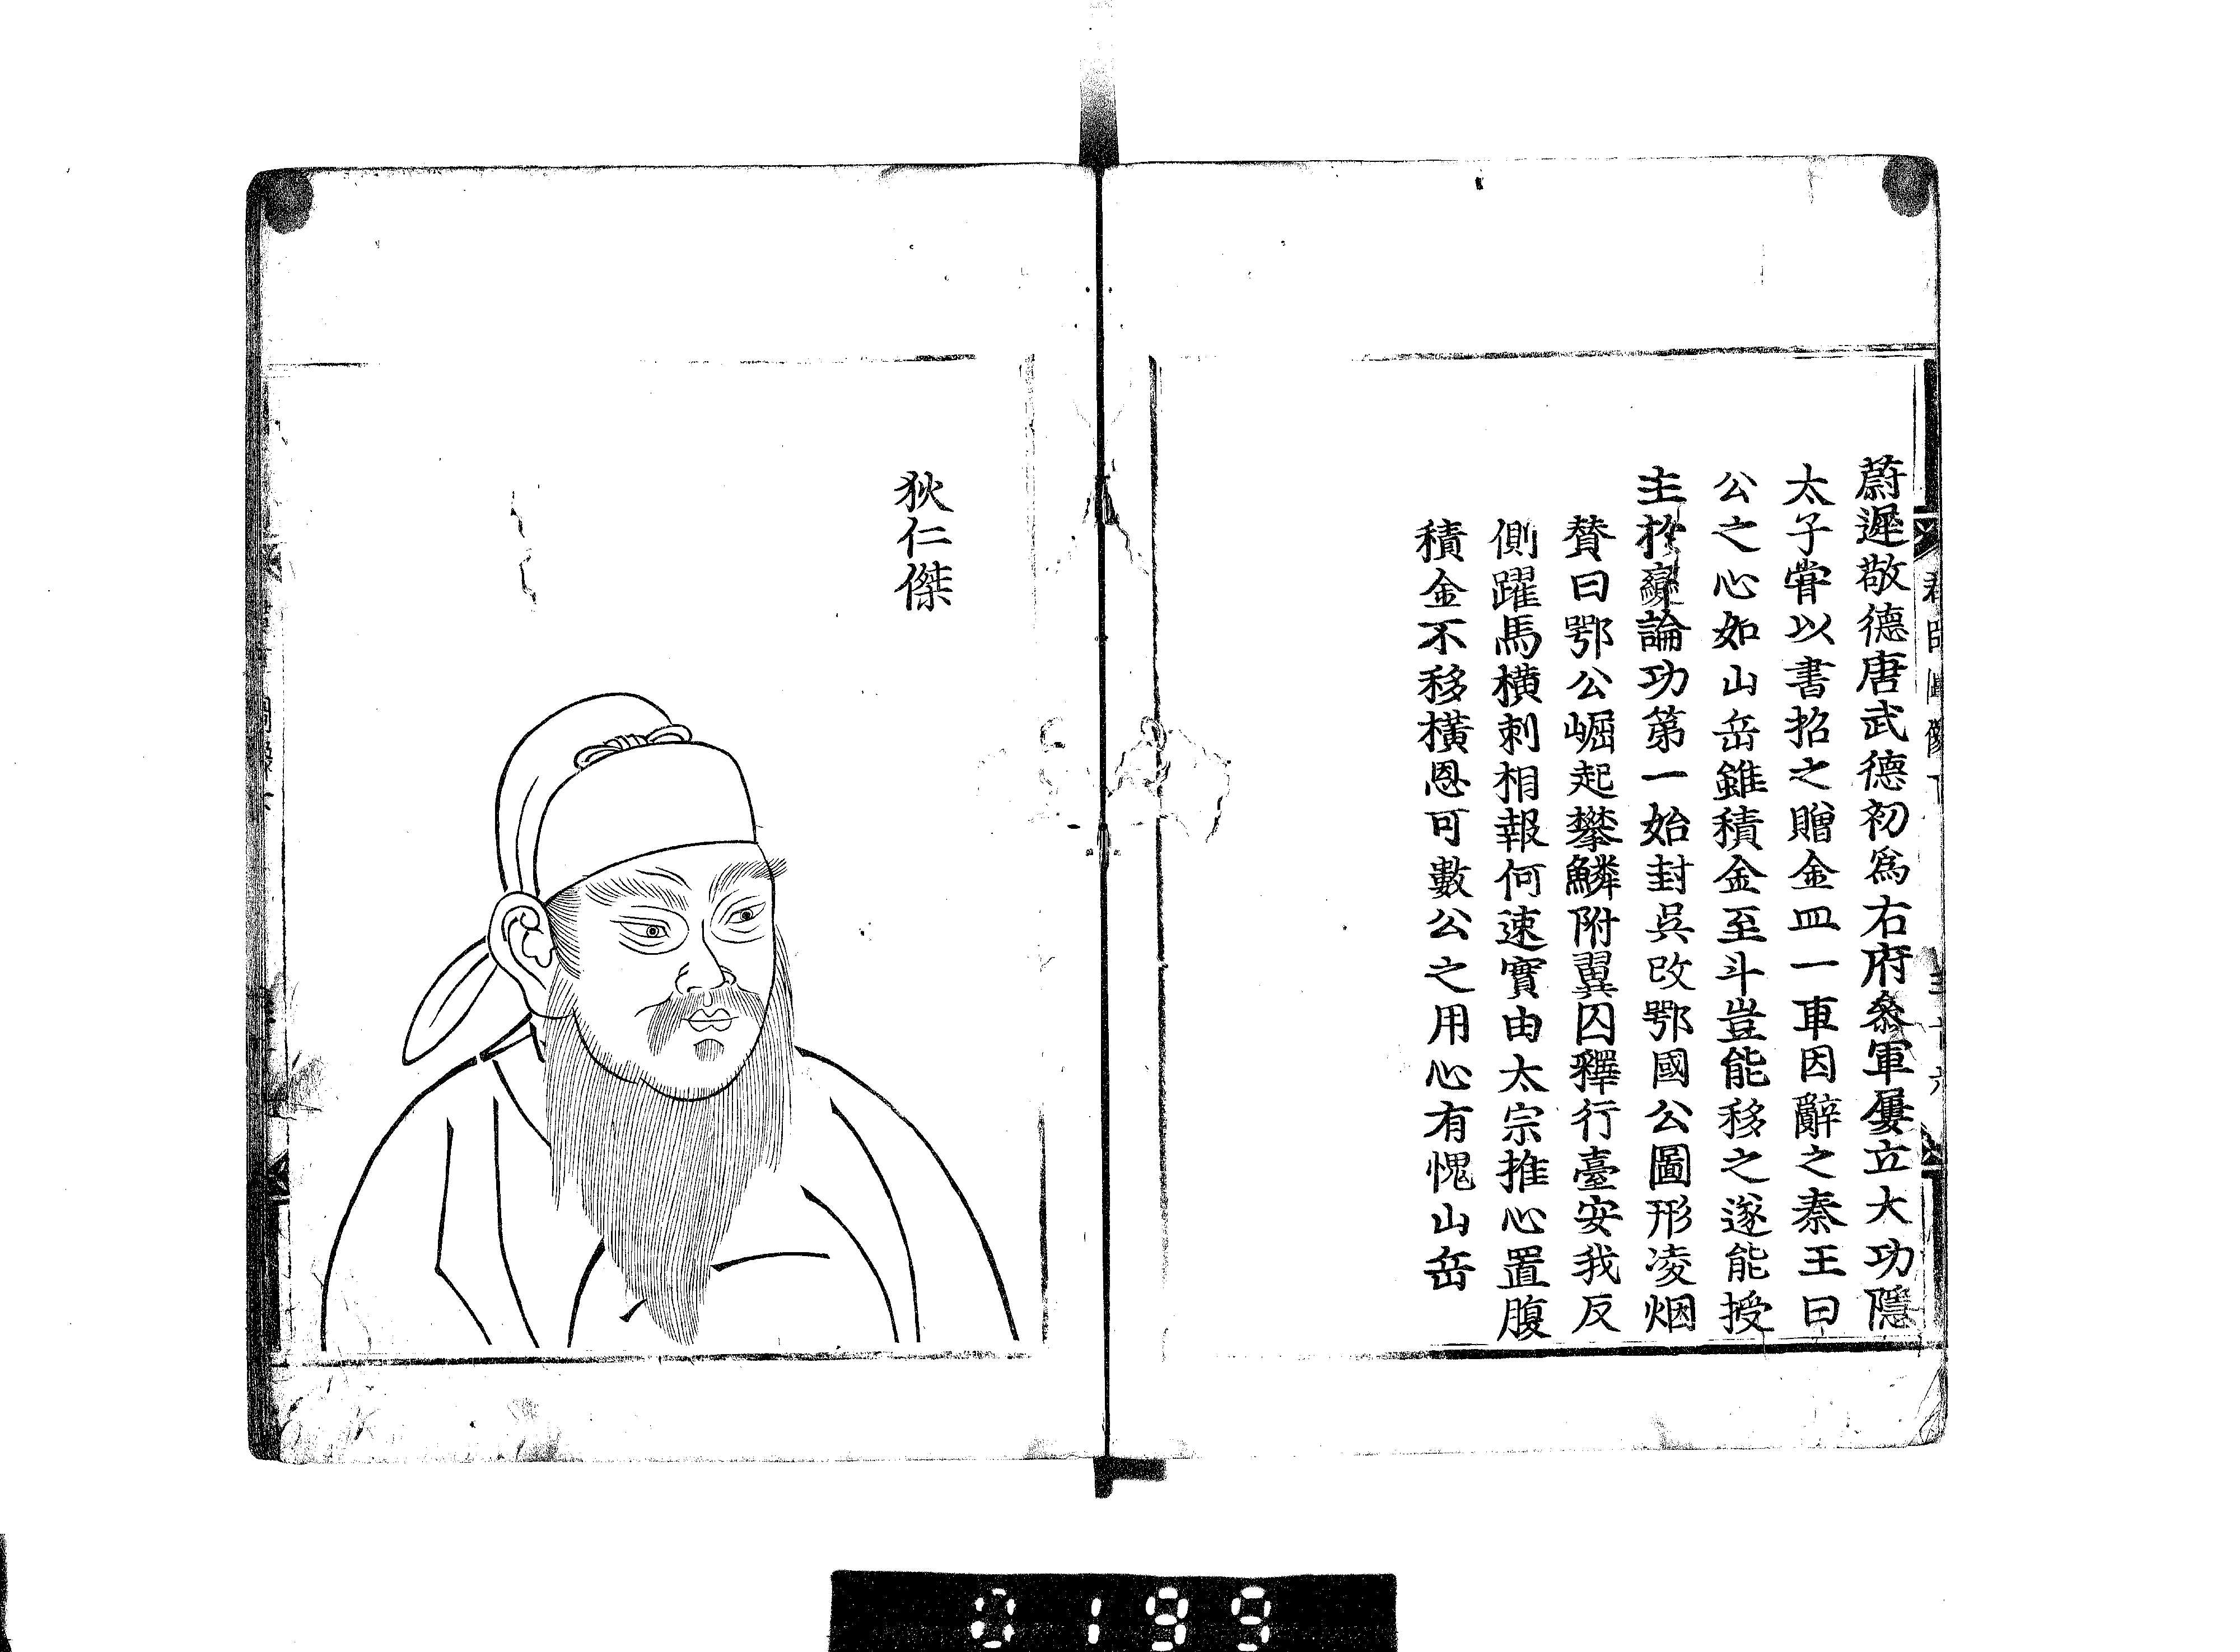 蔚遲敬德唐武德初爲右府叅軍屢立大功隱
太子甞以書招之贈金皿一車因辭之秦王曰
公之心如山岳雖積金至斗豈能移之遂能授
主扵變論功第一始封吳改鄂國公圖形凌烟
賛曰鄂公崛起攀鱗附翼囚釋行臺安我反
側躍馬橫刺相報何速實由太宗推心置腹
積金不移橫恩可數公之用心有愧山岳
狄仁傑
0199